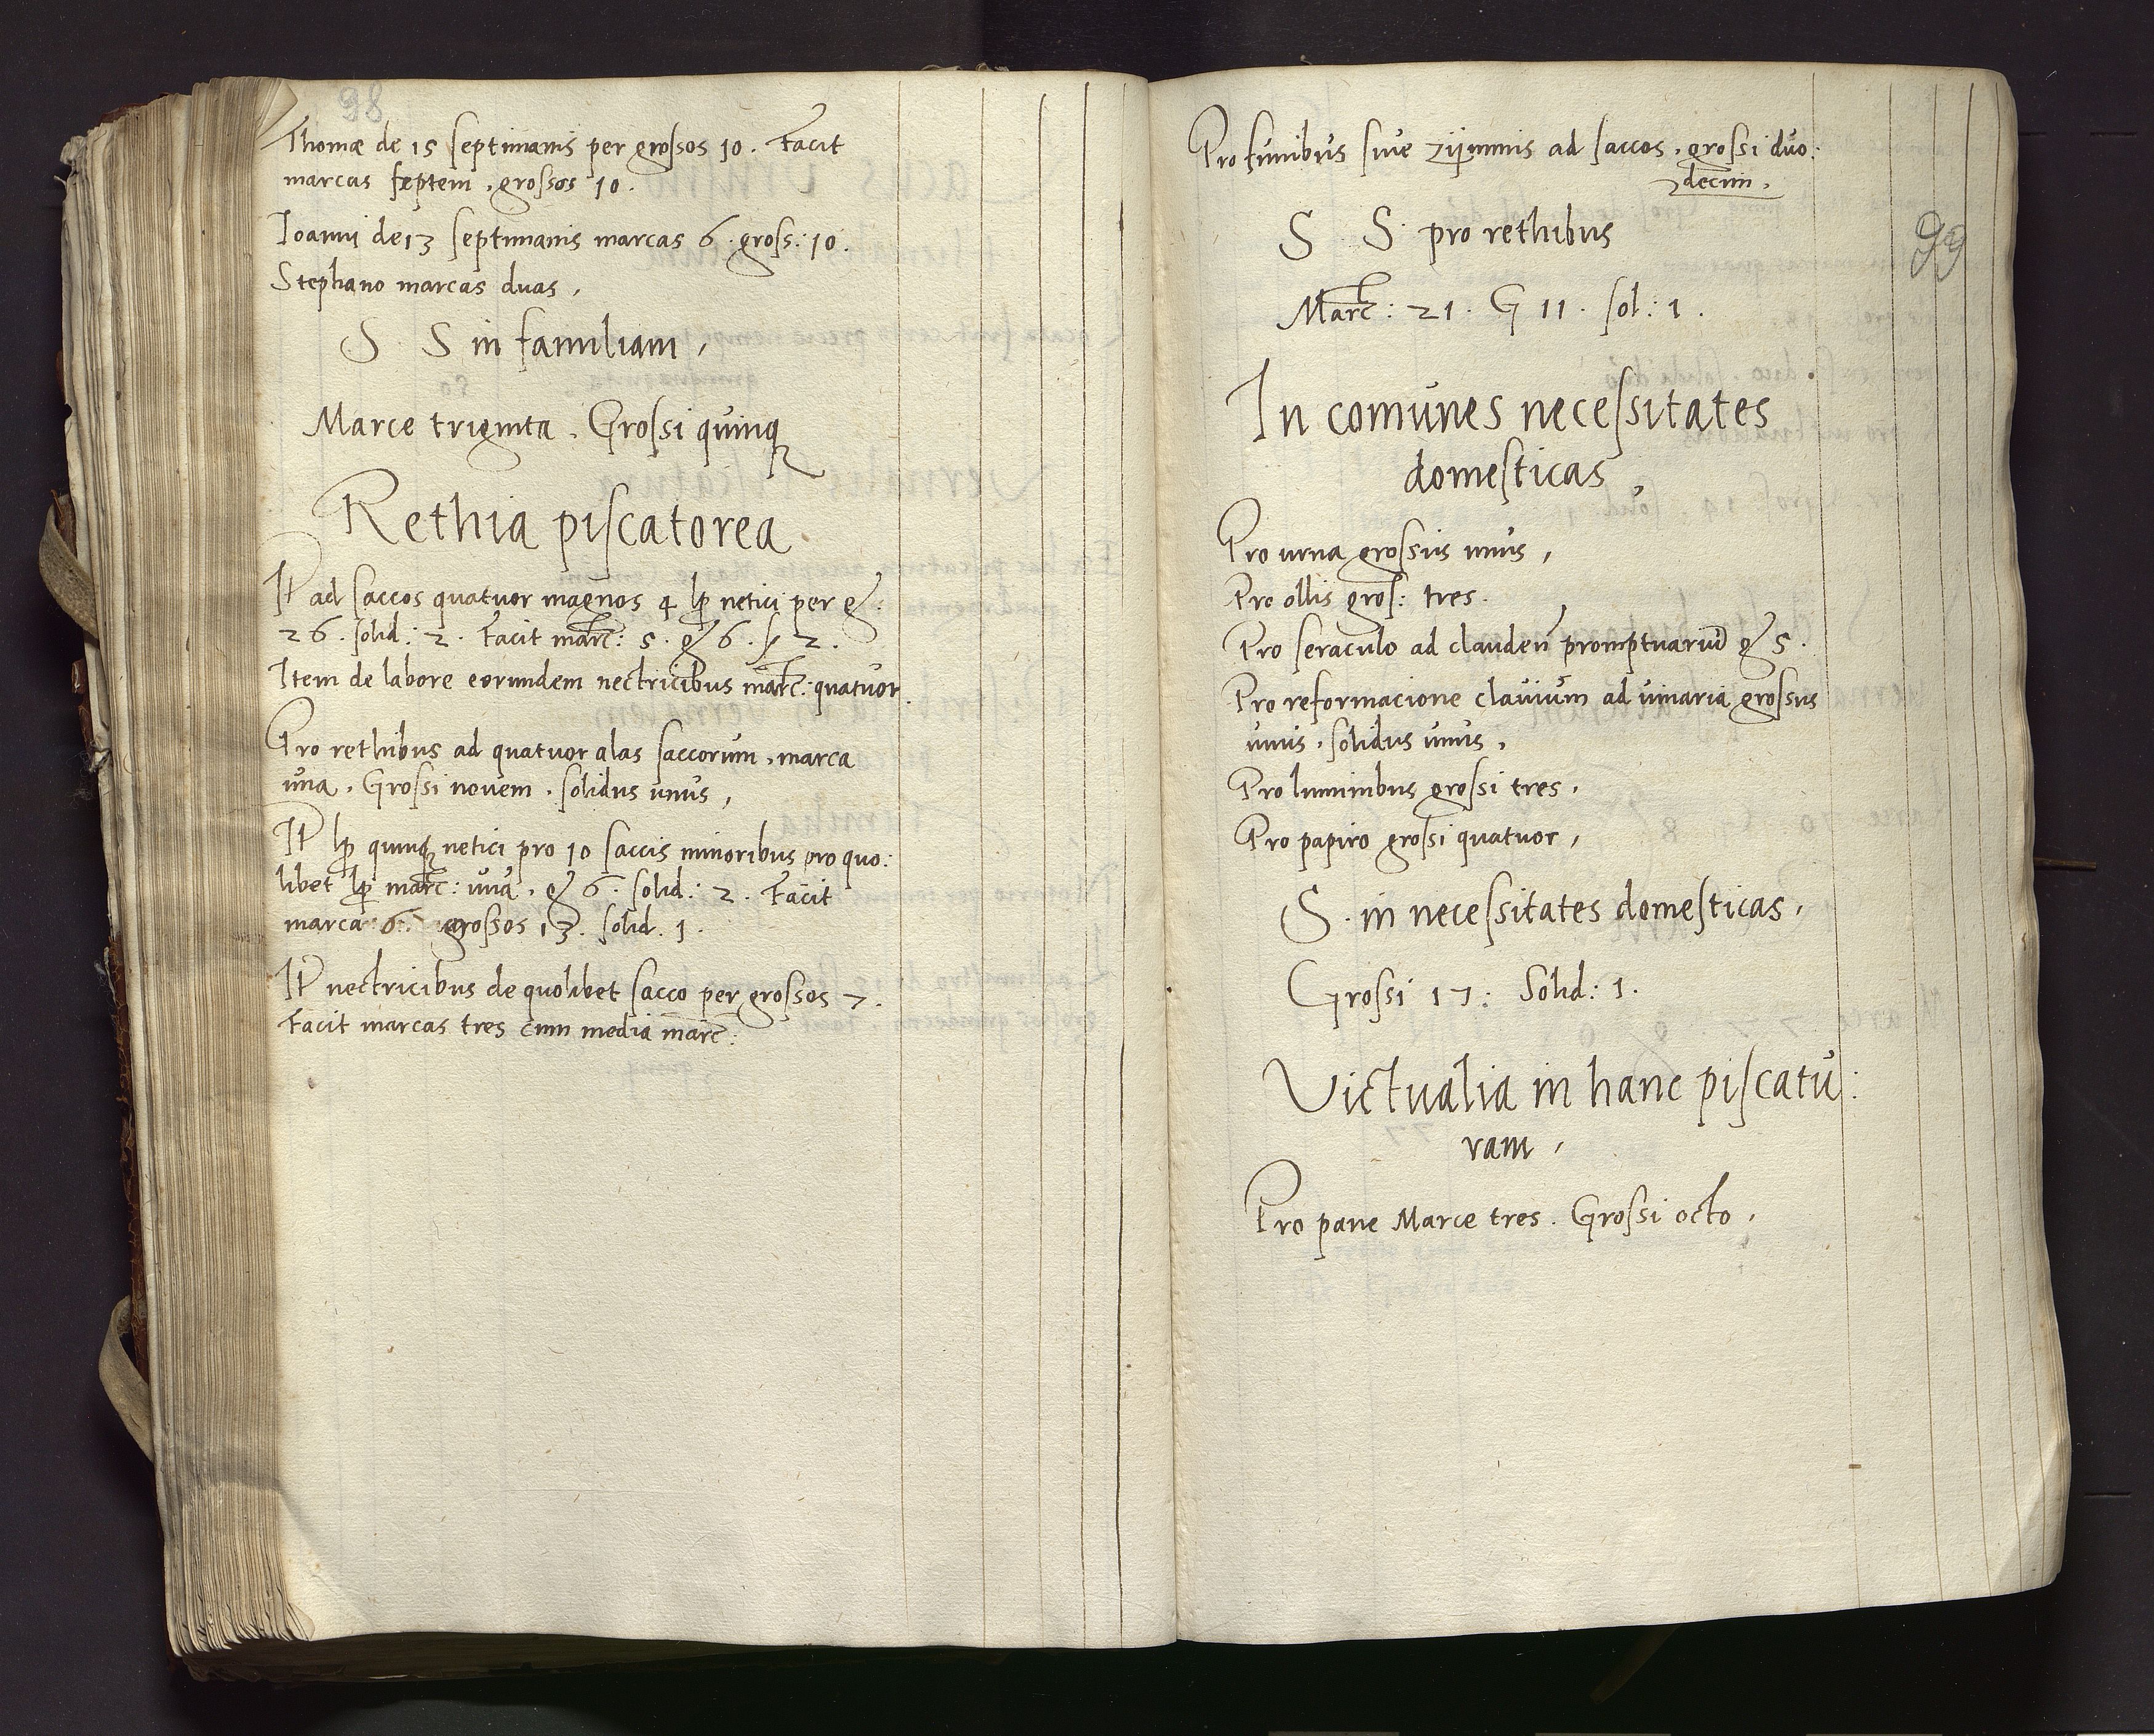 98
Thomæ de 15 septimanis per grossos 10. Facit
marcas septem, grossos 10.
Ioanni de 13 septimanis marcas 6. gross: 10.
Stephano marcas duas,
S S in familiam,
Marce triginta. Grossi quinq
Rethia piscatorea
It ad saccos quatuor magnos 4 lp netici per g:
26. solid: 2. Facit marc: 5. g 6. s 2.
Item de labore eorundem nectricibus marc: quatuor.
Pro rethibus ad quatuor alas saccorum, marca
una. Grossi novem. solidus unus,
It lp quinq netici pro 10 saccis minoribus pro quo:
libet lp marc: una, g 6. solid: 2. Facit
marcas 6. grossos 13. solid. 1.
It nectricibus de quolibet sacco per grossos 7.
Facit marcas tres cum media marc:
Pro funibus sive zijmmis ad saccos, grossi duo:
decim,
99
S S pro rethibus
Marc: 21. G 11. sol: 1.
In comunes necessitates
domesticas,
Pro urna grossus unus,
Pro ollis gros: tres.
Pro seraculo ad clauden promptuariu g 5.
Pro reformacione clavium ad vinaria grossus
unus, solidus unus,
Pro luminibus grossi tres,
Pro papiro grossi quatuor,
S. in necessitates domesticas,
Grossi 17: Solid: 1.
Victualia in hanc piscatu:
ram,
Pro pane Marce tres. Grossi octo,